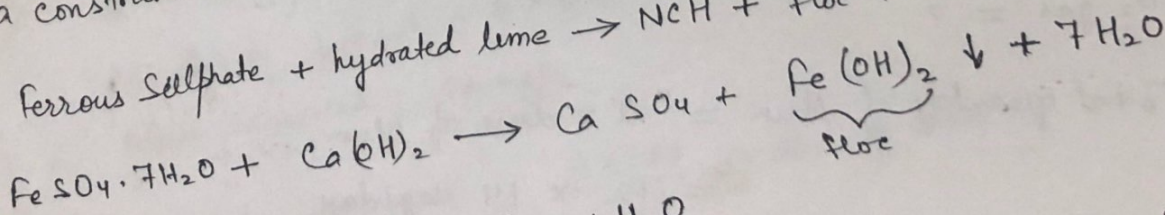 a
Ferrous Sulphate + hydrated lime → NCH +
FeSO4·7H2O + Ca(OH)2 → CaSO4 + Fe(OH)2 ↓ + 7H2O
floc